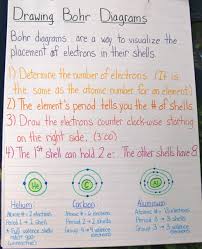 Drawing Bohr Diagrams
Bohr diagrams are a way to visualize the
placement of electrons in their shells.
1) Determine the number of electrons. (It is
the same as the atomic number for an element)
2) The element's period tells you the # of shells
3) Draw the electrons counter clock-wise starting
on the right side. (3:00)
4) The 1st Shell can hold 2 e⁻. The other shells have 8
He
C
Al
Helium
Carbon
Aluminum
Atomic # = 2 electrons
Atomic # = 6 electrons
Period 1 → 1 shell
Period 2 → 2 shells
Period 3 → 3 shells